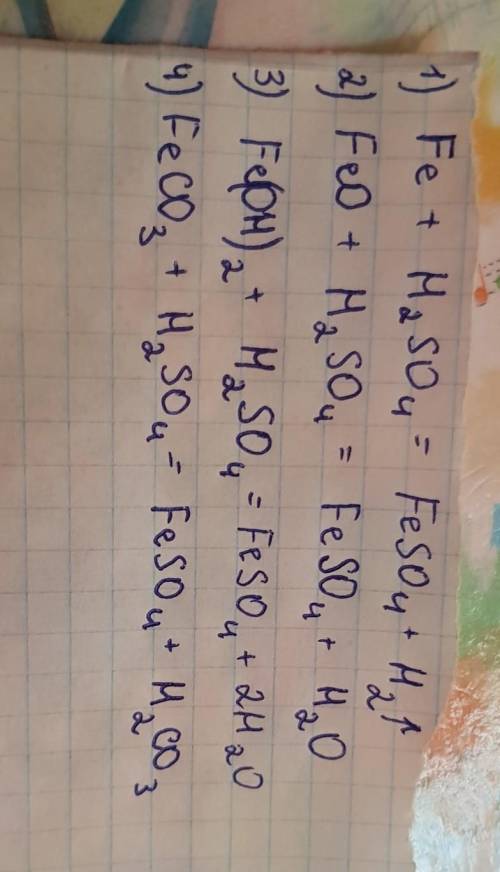 1) Fe + H₂SO₄ = FeSO₄ + H₂↑
2) FeO + H₂SO₄ = FeSO₄ + H₂O
3) Fe(OH)₂ + H₂SO₄ = FeSO₄ + 2H₂O
4) FeCO₃ + H₂SO₄ = FeSO₄ + H₂CO₃